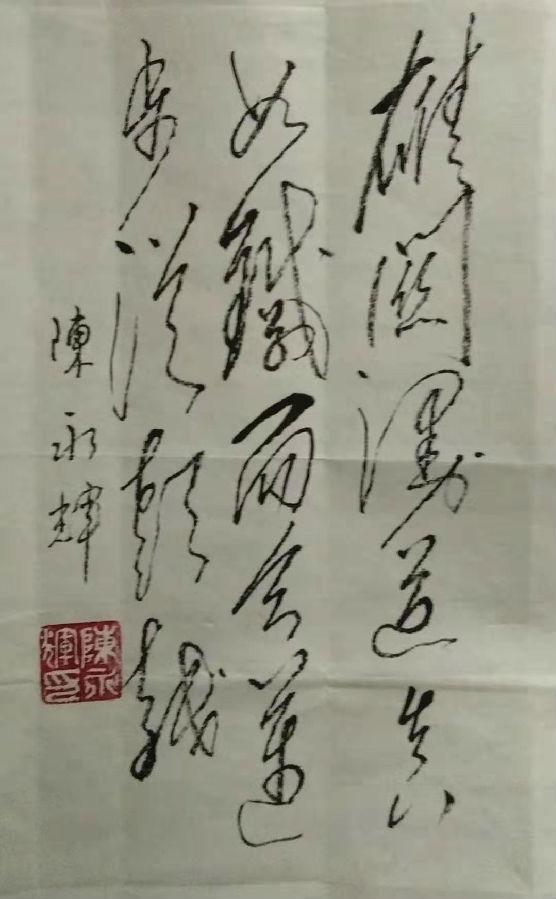 雄關漫道真
如鐵而今邁
步從頭越
陳永輝
陳永
輝印